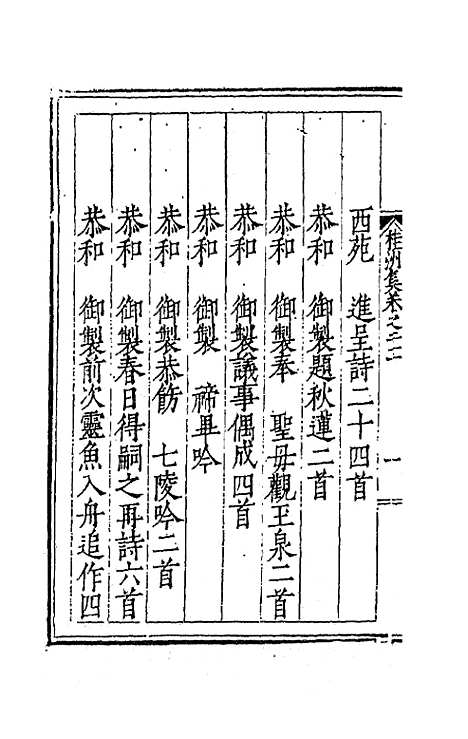 桂洲集卷之二
一
西苑 進呈詩二十四首
恭和 御製題秋蓮二首
恭和 御製奉 聖母觀玉泉二首
恭和 御製議事偶成四首
恭和 御製 禘畢吟
恭和 御製恭飭 七陵吟二首
恭和 御製春日得嗣之再詩六首
恭和 御製前次靈魚入舟追作四